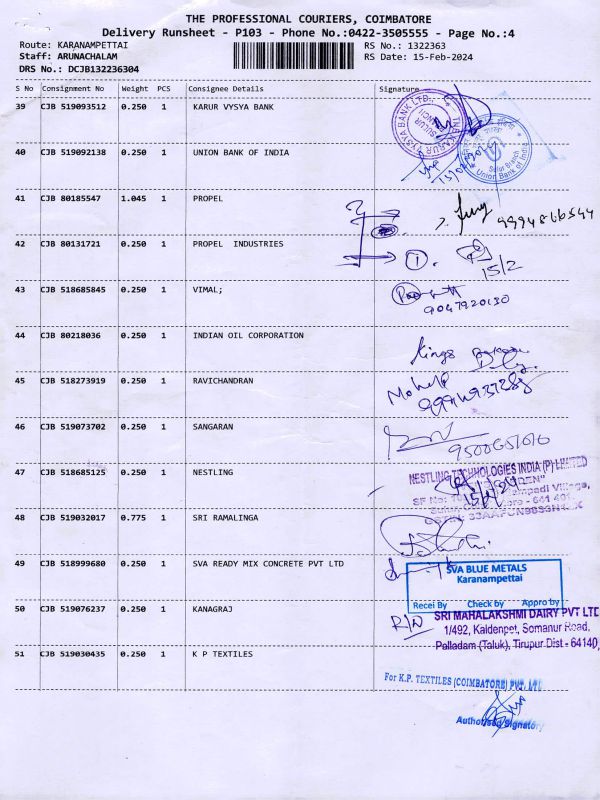 THE PROFESSIONAL COURIERS, COIMBATORE
Delivery Runsheet - P103 - Phone No.:0422-3505555 - Page No.:4
Route: KARANAMPETTAI RS No.: 1322363
Staff: ARUNACHALAM RS Date: 15-Feb-2024
DRS No.: DCJB132236304
S No Consignment No Weight PCS Consignee Details Signature
39 CJB 519093512 0.250 1 KARUR VYSYA BANK
SULUR
40 CJB 519092138 0.250 1 UNION BANK OF INDIA
Sulur Branch
Union Bank of India
41 CJB 80185547 1.045 1 PROPEL
42 CJB 80131721 0.250 1 PROPEL INDUSTRIES
1
15/2
43 CJB 518685845 0.250 1 VIMAL;
9047920130
44 CJB 80218036 0.250 1 INDIAN OIL CORPORATION
45 CJB 518273919 0.250 1 RAVICHANDRAN
46 CJB 519073702 0.250 1 SANGARAN
47 CJB 518685125 0.250 1 NESTLING
NESTLING TECHNOLOGIES INDIA (P) LIMITED
48 CJB 519032017 0.775 1 SRI RAMALINGA
49 CJB 518999680 0.250 1 SVA READY MIX CONCRETE PVT LTD
SVA BLUE METALS
Karanampettai
Recei By Check by Appro by
50 CJB 519076237 0.250 1 KANAGRAJ
SRI MAHALAKSHMI DAIRY PVT LTD
1/492, Kaldenpet, Somanur Road,
Palladam (Taluk), Tirupur Dist - 64140
51 CJB 519030435 0.250 1 K P TEXTILES
For K.P. TEXTILES (COIMBATORE) PVT. LTD
Authorised Signatory